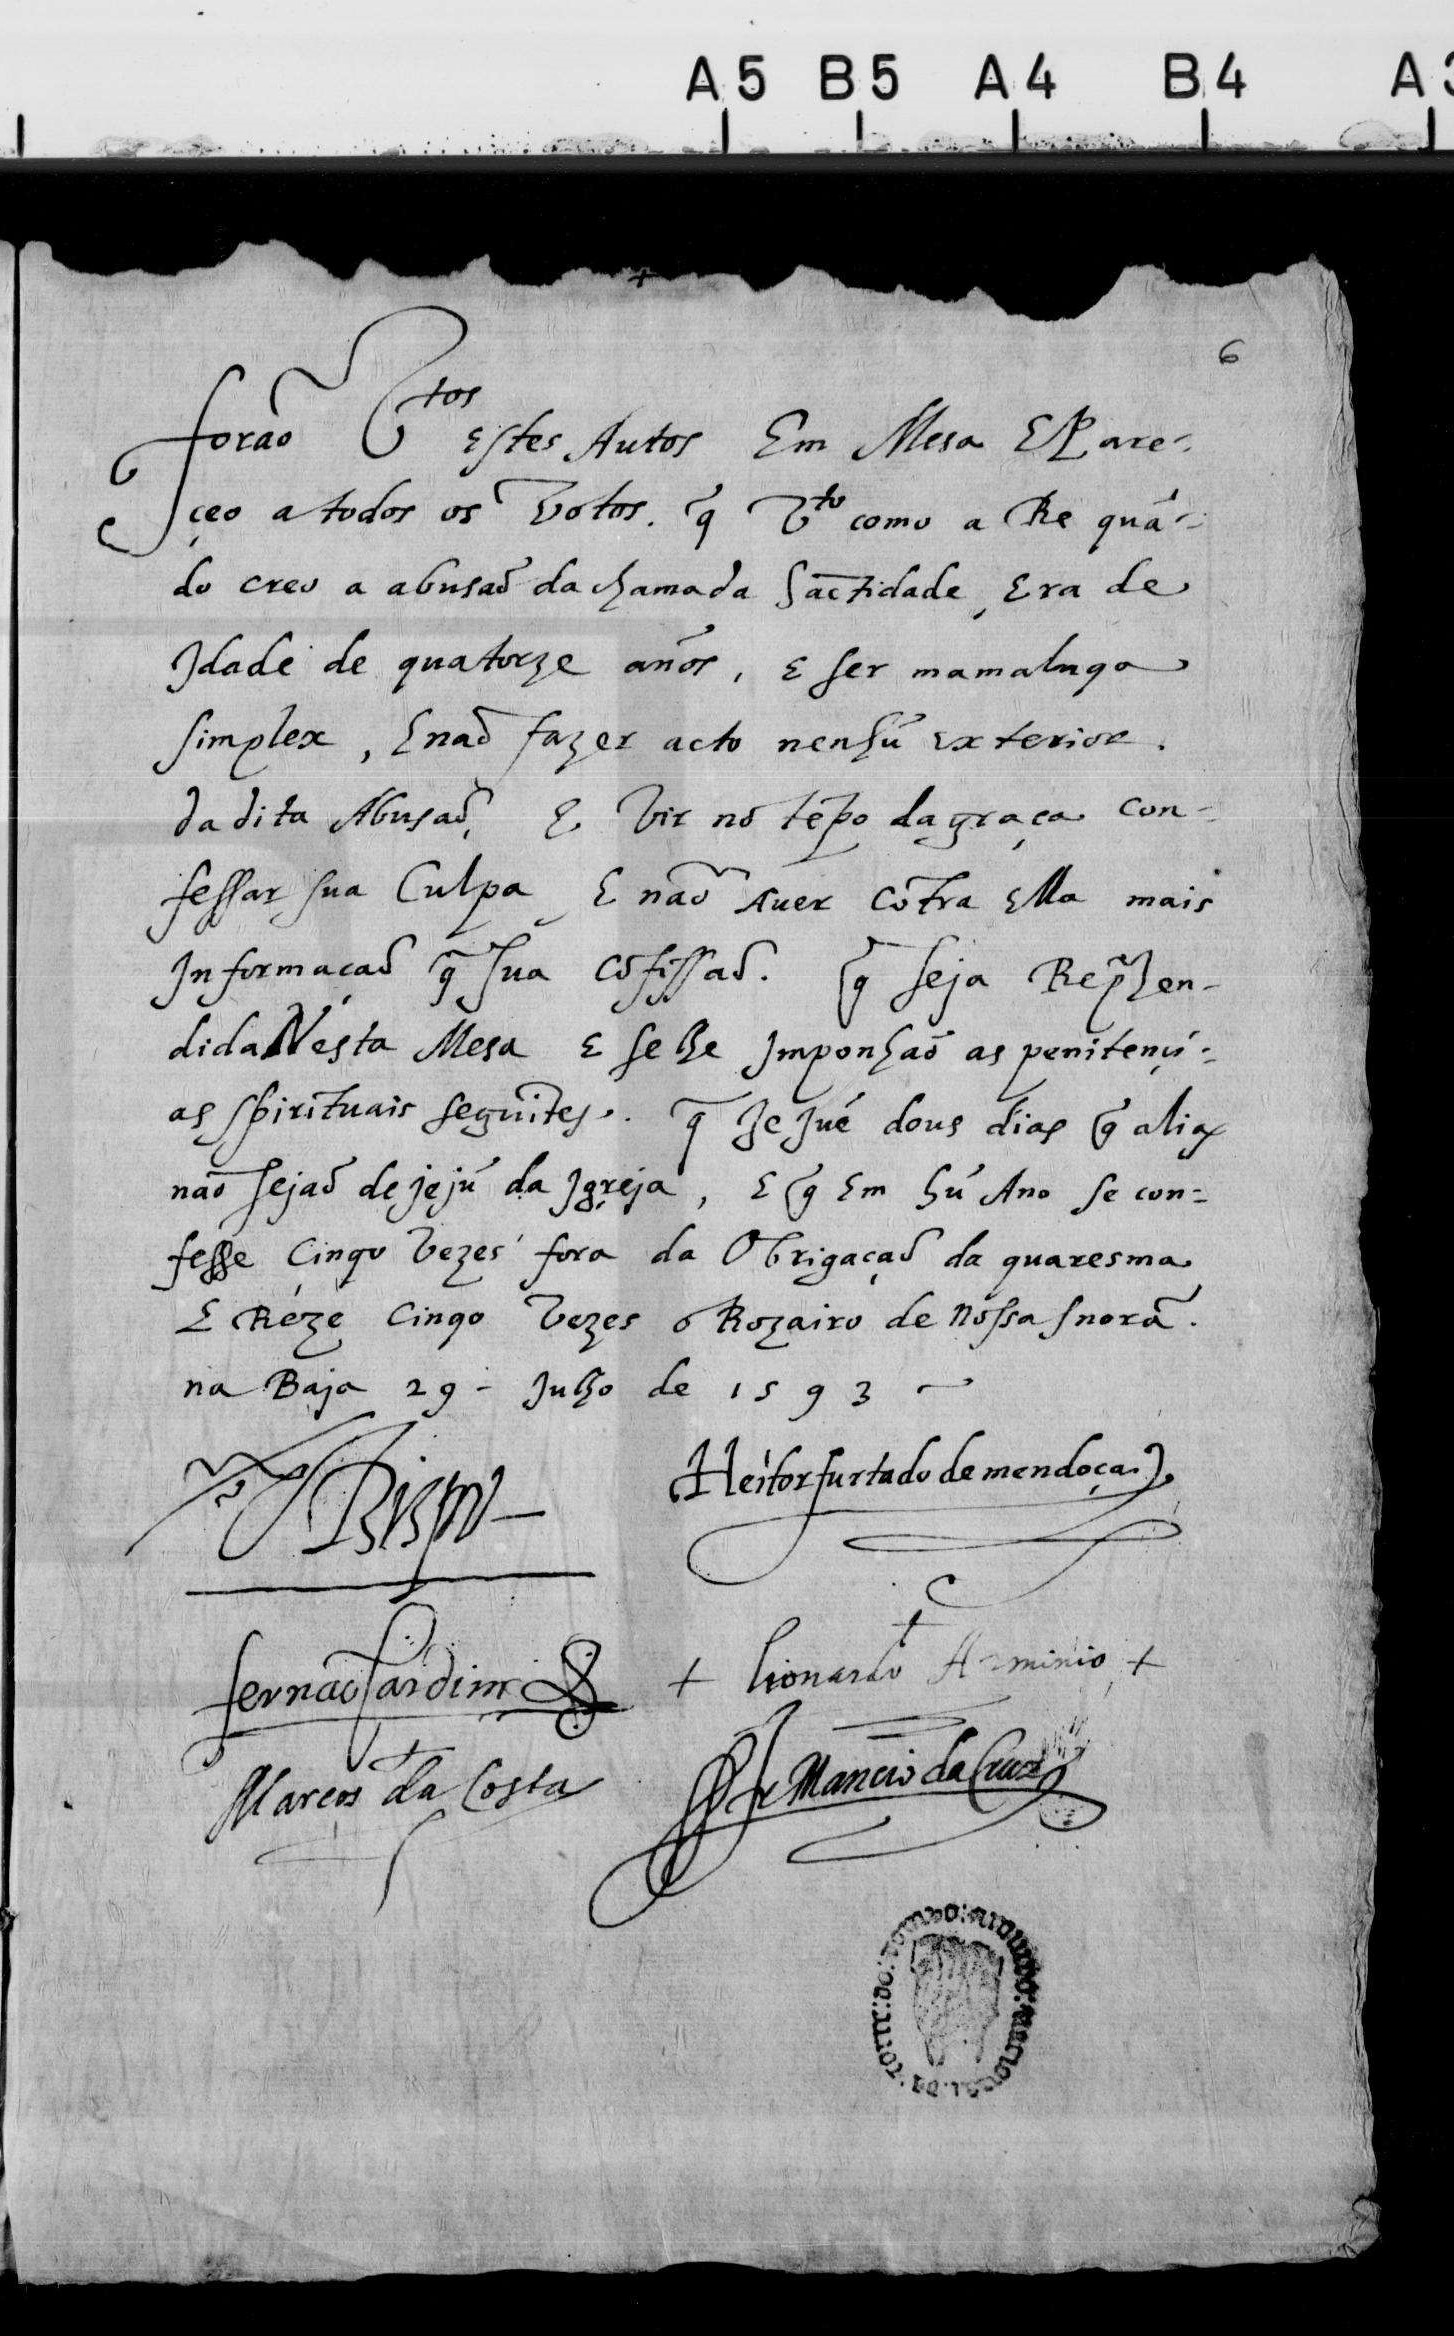 A5 B5 A4 B4 A3
+
6
forão Vtos estes Autos Em Mesa E Pare-
çeo a todos os Votos. q̃ Vto como a Re quã-
do creo a abusaõ da chamada Sãctidade, Era de
Idade de quatorze años, e ser mamaluqa
simplex, E naõ fazer acto nenhũ exterior.
da dita Abusaõ, E Vir no tẽpo da graça con-
fessar sua Culpa E naõ Auer cõtra Ella mais
Informacaõ q̃ sua cõfissaõ. q̃ seja Repr̃hen-
dida Nesta Mesa e se lhe Imponhaõ as penitençi-
as spirituais seguĩtes. q̃ Jejuẽ dous dias q̃ alias
naõ sejaõ de jejũ da Igreja, E q̃ Em hũ Ano se con-
fesse Cinqo Vezes fora da Obrigaçaõ da quaresma
E Reze Cinqo Vezes o Rozairo de Nossa Snorã.
na Baja 29 - Julho de 1593
Bispo
Heitor furtado de mendoça
fernão Cardim
+ lionardo Arminio +
Marcos da Costa
fr Mancio da Cruz